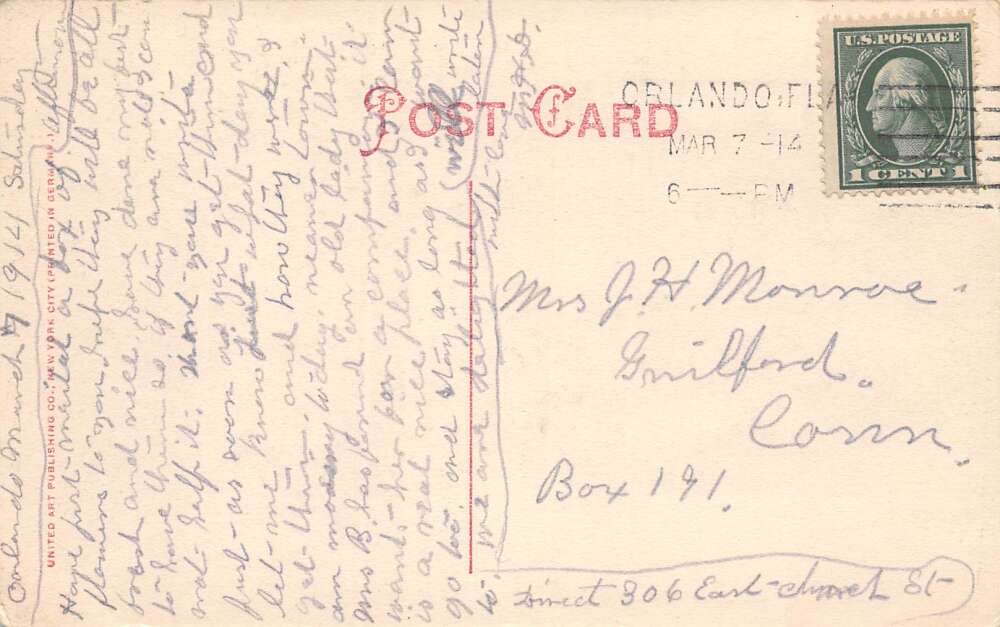 Orlando March 7 1914 Saturday
Have just mailed a box of
flowers to you hope they will be all
and nice have done my best
to have them so if they are not I can
not help it. want you write
Just as soon as you get this card
let me know just what day you
get them, and how they were, I
am moving today, nearer town,
Mrs B has found an old lady that
wants her for company and it
is a real nice place, and I am
go too. and stay as long as I want
to. we are delighted will write
later
with love
UNITED ART PUBLISHING CO., NEW YORK CITY (PRINTED IN GERMANY)
POST CARD
ORLANDO, FLA
MAR 7 -14
6 PM
U.S. POSTAGE
1 CENT 1
Mrs J. H. Monroe.
Guilford.
Conn.
Box 191.
Direct 306 East church St